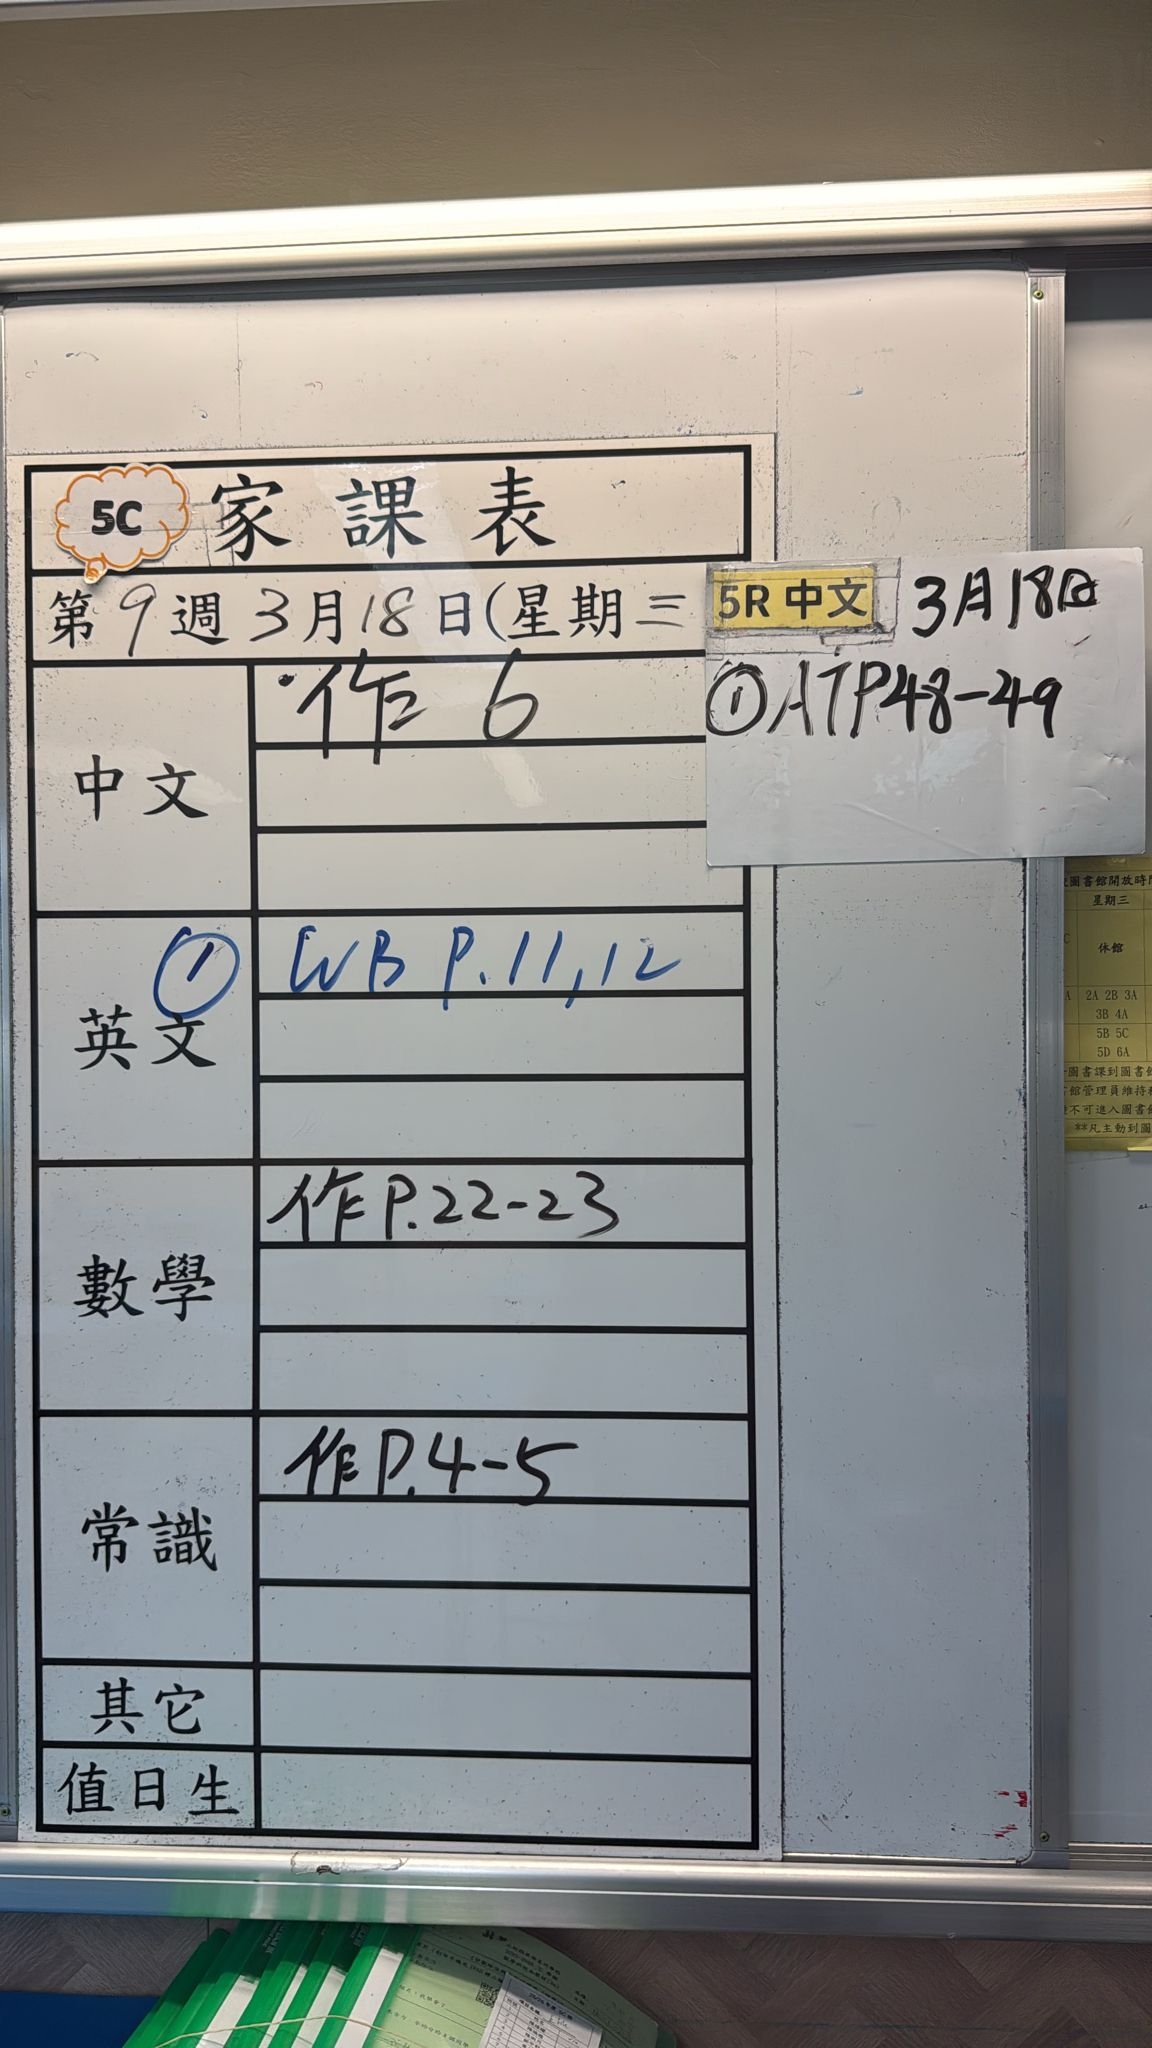 5C 家課表
第9週3月18日(星期三
中文
作 6
5R 中文 3月18日
①ATP48-49
英文
① WB P.11,12
數學
作P.22-23
常識
作P.4-5
其它
值日生
圖書館開放時
星期三
休館
2A 2B 3A
3B 4A
5B 5C
5D 6A
圖書課到圖書
館管理員維持
不可進入圖書
**凡主動到圖